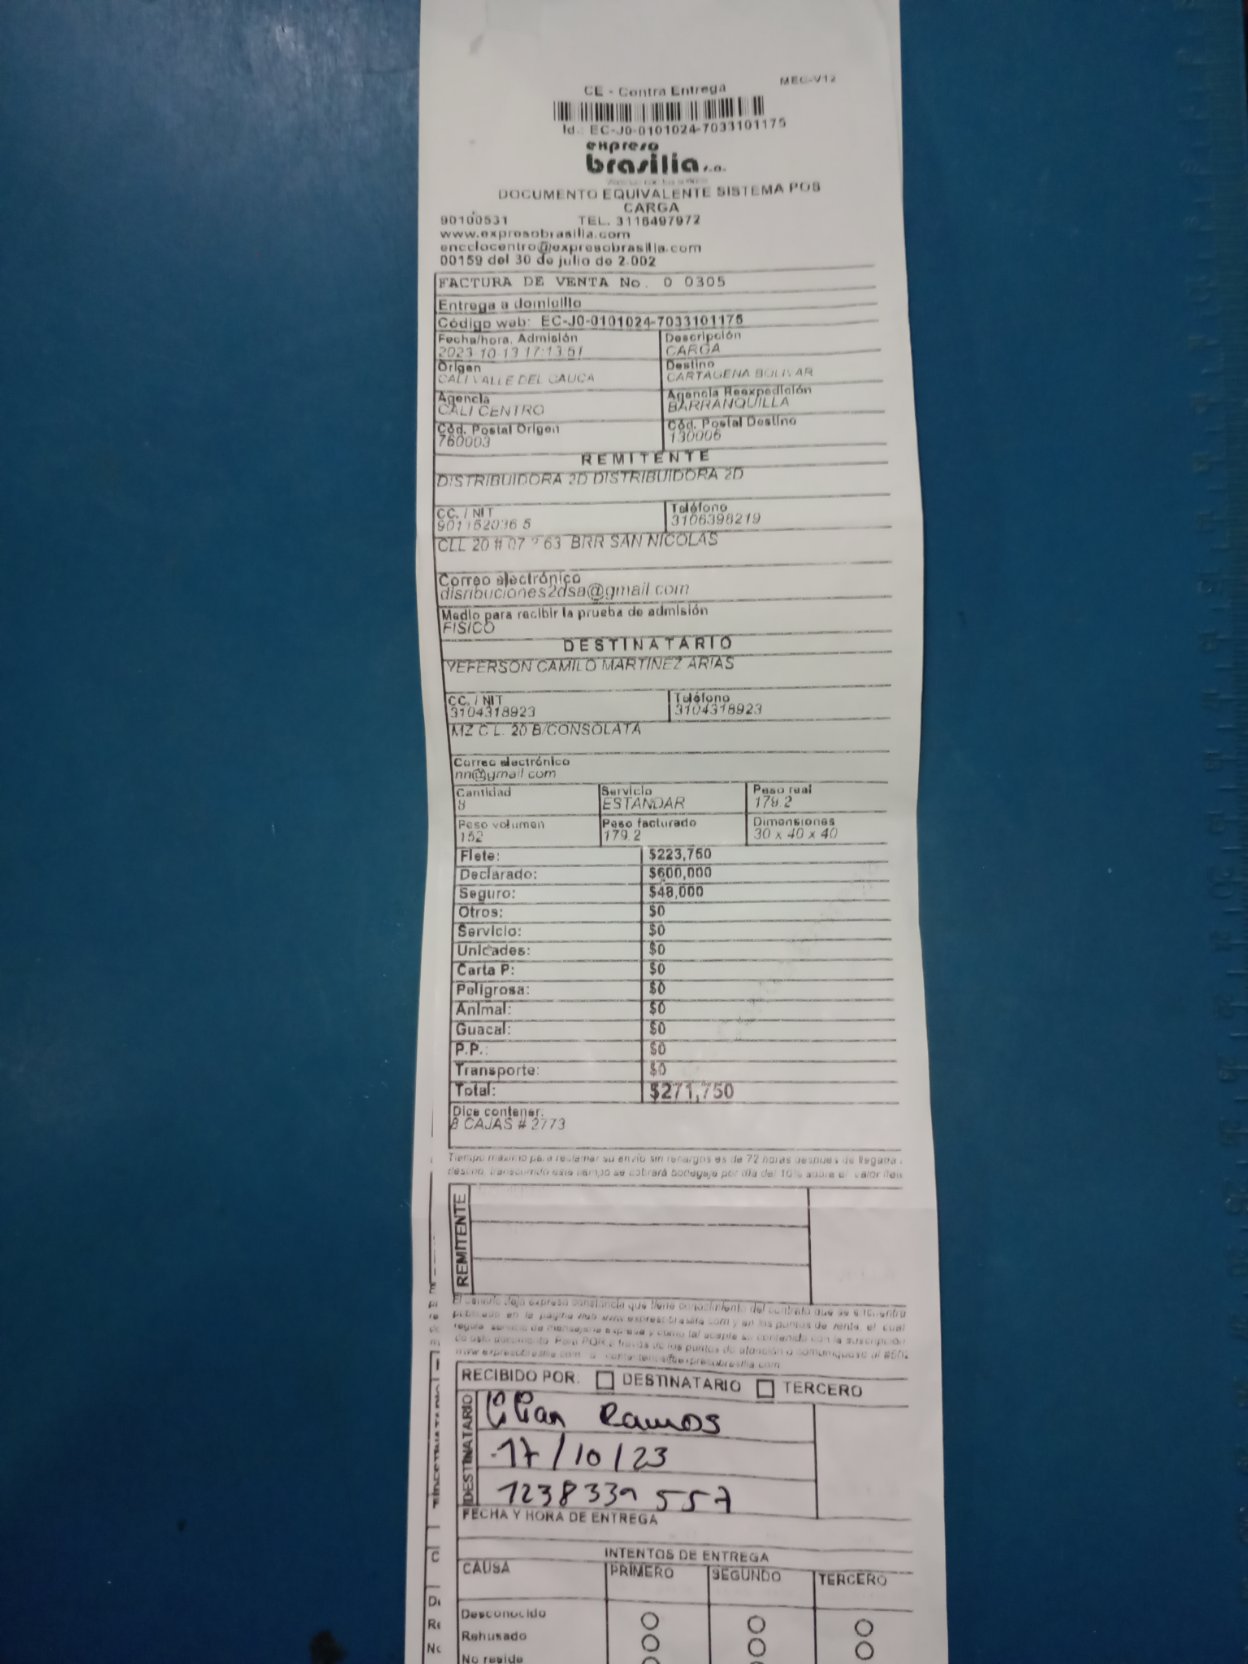 MEC-V12
CE - Contra Entrega
Id.: EC-J0-0101024-7033101175
expreso
brasilia s.a.
DOCUMENTO EQUIVALENTE SISTEMA POS
CARGA
90100531 TEL. 3116497972
www.expresobrasilia.com
encclocentro@expresobrasilia.com
00159 del 30 de julio de 2.002
FACTURA DE VENTA No. 0 0305
Entrega a domicilio
Código web: EC-J0-0101024-7033101175
Fecha/hora. Admisión Descripción
2023-10-13 17:13:51 CARGA
Origen Destino
CALI VALLE DEL CAUCA CARTAGENA BOLIVAR
Agencia Agencia Reexpedición
CALI CENTRO BARRANQUILLA
Cód. Postal Origen Cód. Postal Destino
760003 130006
REMITENTE
DISTRIBUIDORA 2D DISTRIBUIDORA 2D
CC. / NIT Teléfono
901152036 5 3106398219
CLL 20 # 07 ? 63 BRR SAN NICOLAS
Correo electrónico
disribuciones2dsa@gmail.com
Medio para recibir la prueba de admisión
FISICO
DESTINATARIO
YEFERSON CAMILO MARTINEZ ARIAS
CC. / NIT Teléfono
3104318923 3104318923
MZ C L. 20 B/CONSOLATA
Correo electrónico
nn@gmail.com
Cantidad Servicio Peso real
8 ESTANDAR 179.2
Peso volumen Peso facturado Dimensiones
152 179.2 30 x 40 x 40
Flete: $223,750
Declarado: $600,000
Seguro: $48,000
Otros: $0
Servicio: $0
Unidades: $0
Carta P: $0
Peligrosa: $0
Animal: $0
Guacal: $0
P.P.: $0
Transporte: $0
Total: $271,750
Dice contener:
8 CAJAS # 2773
Tiempo máximo para reclamar su envío sin recargos es de 72 horas después de llegada
destino, transcurrido este tiempo se cobrará bodegaje por día del 10% sobre el valor flete
REMITENTE
El usuario deja expresa constancia que tiene conocimiento del contrato que se encuentra
publicado en la página web www.expresobrasilia.com y en los puntos de venta, el cual
regula servicio de mensajería expresa y como tal acepta su contenido con la suscripción
de este documento. Para PQR a través de los puntos de atención o comuníquese al
www.expresobrasilia.com
RECIBIDO POR: DESTINATARIO TERCERO
DESTINATARIO
Lilian Ramos
17/10/23
1238339557
FECHA Y HORA DE ENTREGA
INTENTOS DE ENTREGA
CAUSA PRIMERO SEGUNDO TERCERO
Desconocido
Rehusado
No reside